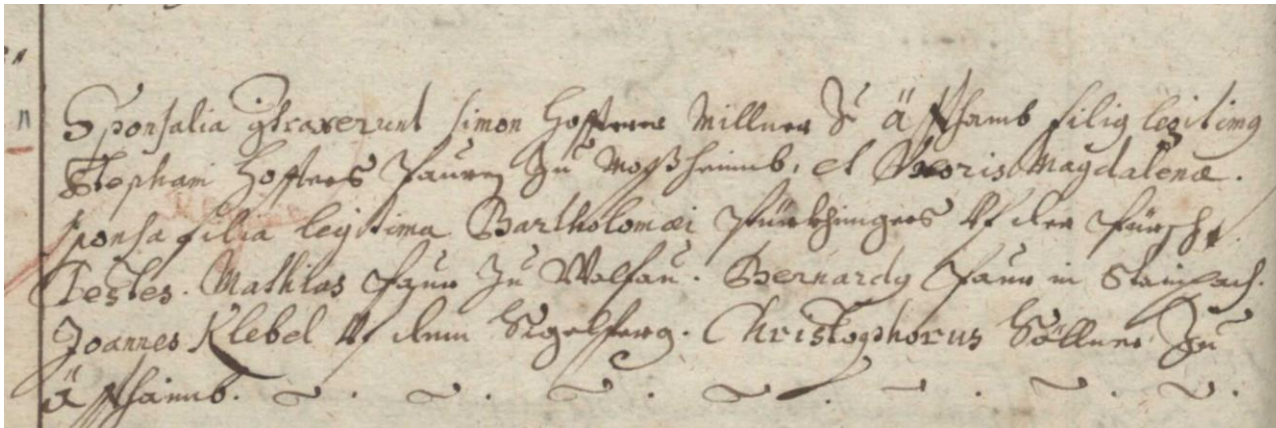 Sponsalia gtraxerunt Simon Hoffrer Millner Zu Äschamb filig legitimg
Stephani Hoffrers Paurn Zu Moßheimb, et Uxoris Magdalenæ.
sponsa filia legitima Bartholomæi auf der
Testes. Mathias Paur Zu Walsau. Bernardg Paur in Stainpach.
Joannes Klebel auf dem Sigelsperg. Christophorus Söllner Zu
Äschaimb.